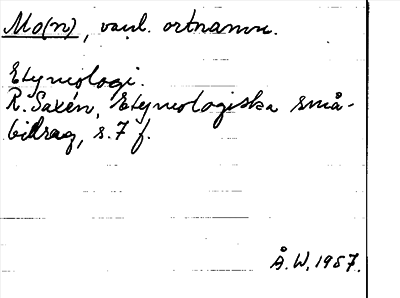 Mo(n), vanl. ortnamn.
Etymologi.
R. Saxén, Etymologiska små-
bidrag, s. 7 f.
Å. W, 1957.